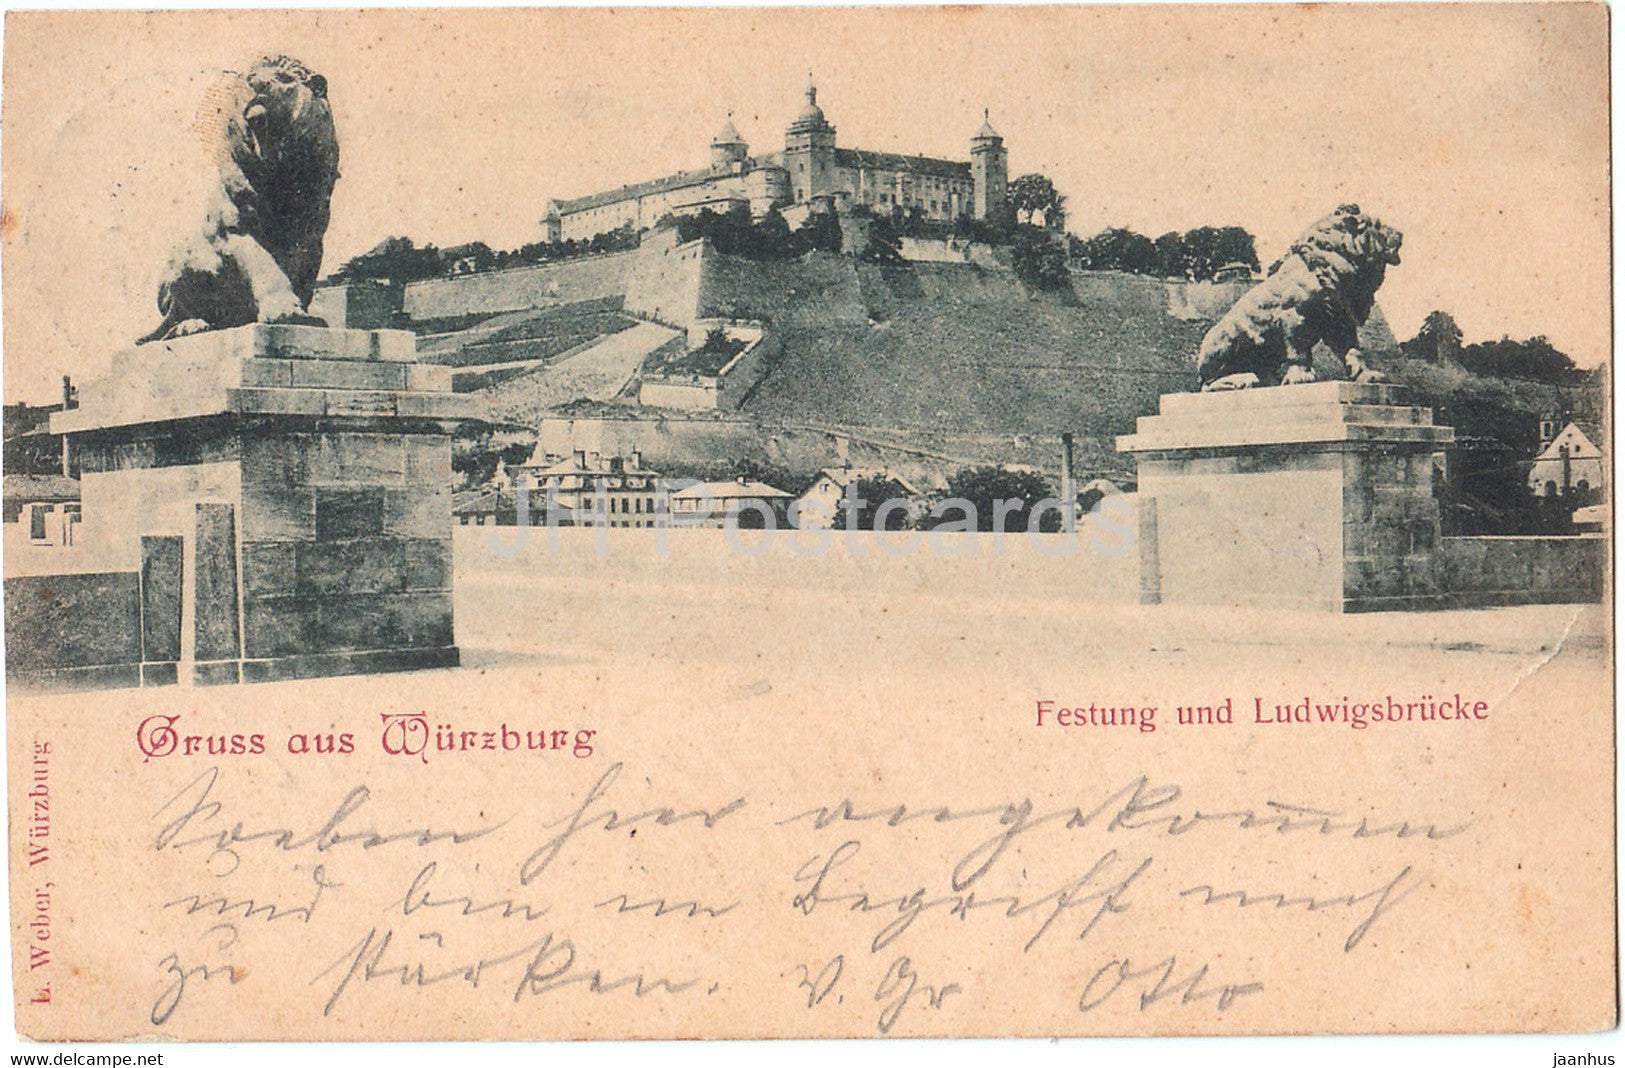 JH Postcards
Gruss aus Würzburg
Festung und Ludwigsbrücke
L. Weber, Würzburg
Soeben hier angekommen
und bin im Begriff mich
zu stärken. V. Gr Otto
www.delcampe.net
jaanhus